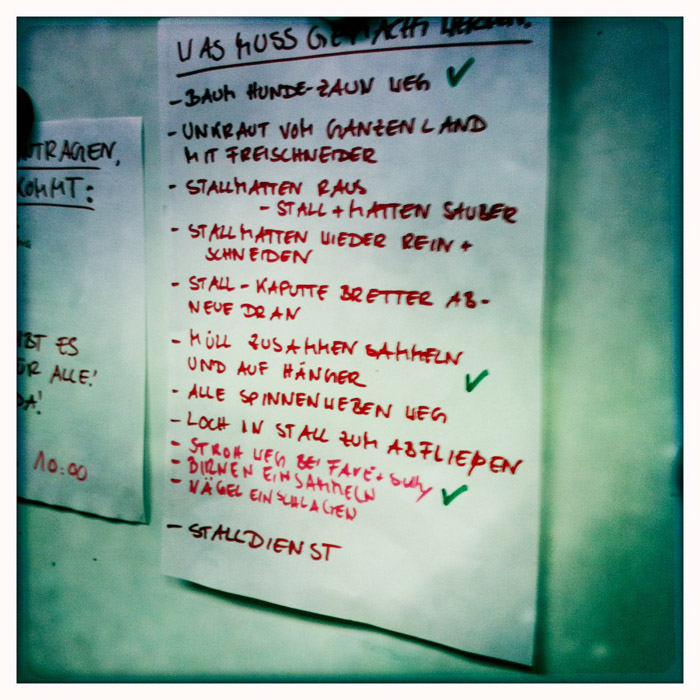 WAS MUSS GEMACHT WERDEN.
- BAUM HUNDE-ZAUN WEG ✓
- UNKRAUT VOM GANZEN LAND
MIT FREISCHNEIDER
- STALLMATTEN RAUS
- STALL + MATTEN SAUBER
- STALLMATTEN WIEDER REIN +
SCHNEIDEN
- STALL - KAPUTTE BRETTER AB-
NEUE DRAN
- MÜLL ZUSAMMEN SAMMELN
UND AUF HÄNGER ✓
- ALLE SPINNENWEBEN WEG
- LOCH IN STALL ZUM ABFLIEßEN
- STROH WEG BEI
- BIRNEN EINSAMMELN ✓
- NÄGEL EINSCHLAGEN
- STALLDIENST
TRAGEN,
KOMMT:
IBT ES
ÜR ALLE!
DA!
10:00